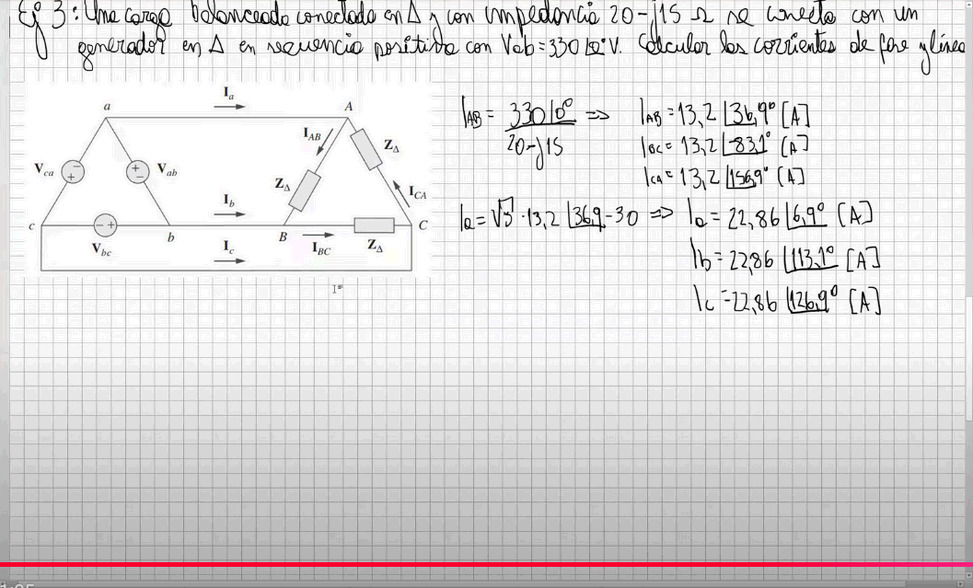 Ej 3: Una carga balanceada conectada en Δ y con impedancia 20-j15 Ω se conecta con un
generador en Δ en secuencia positiva con Vab=330∠0° V. Calcular las corrientes de fase y línea
a
I_a
A
I_AB
Z_Δ
V_ca
V_ab
Z_Δ
I_CA
I_b
c
V_bc
b
B
I_BC
I_c
Z_Δ
C
I_AB = 330∠0° / 20-j15 => I_AB = 13,2∠36,9° [A]
I_BC = 13,2∠-83,1° [A]
I_CA = 13,2∠156,9° [A]
I_a = √3 · 13,2∠36,9-30 => I_a = 22,86∠6,9° [A]
I_b = 22,86∠113,1° [A]
I_c = 22,86∠126,9° [A]